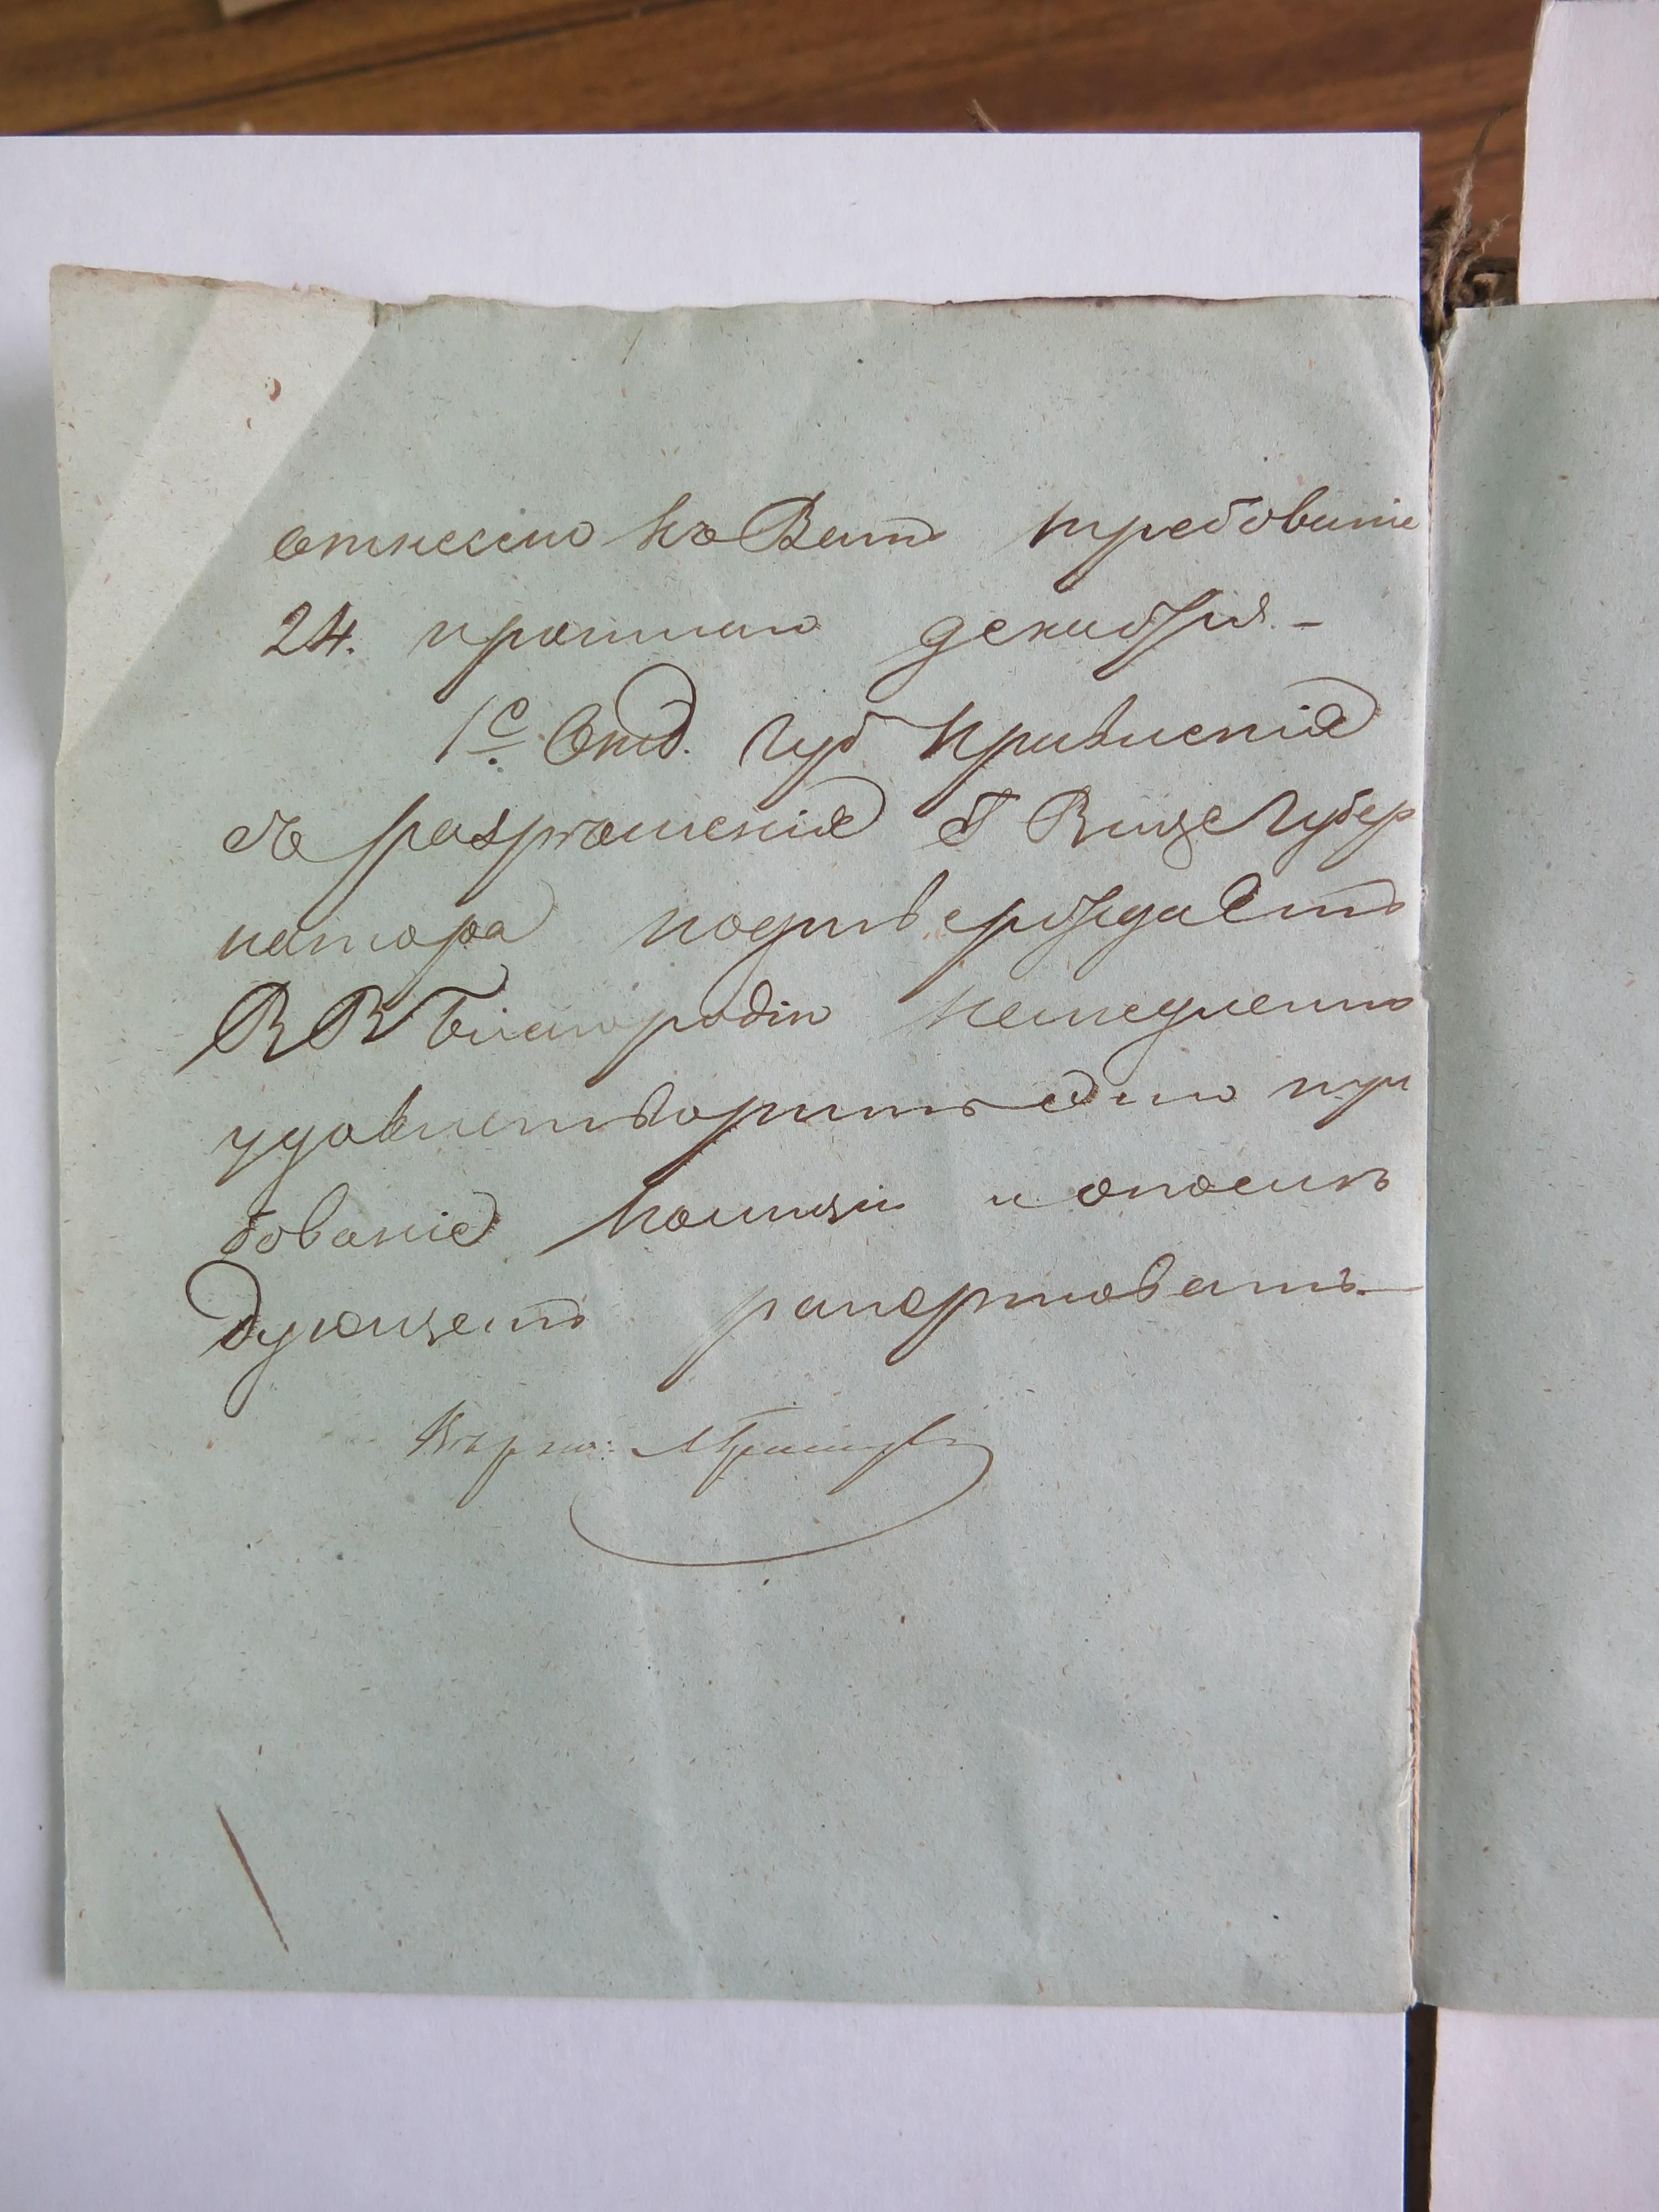 отнесено къ Вамъ требованіе
24. прошлаго декабря. –
1е. Отд. Губ Правленія
съ разрѣшенія Г Вице Губер
натора подтверждаетъ
В В Благородію немедленно
удовлетворить это тре
бованіе Полиціи и о послѣ
дующемъ рапортовать. –
Вѣрно: